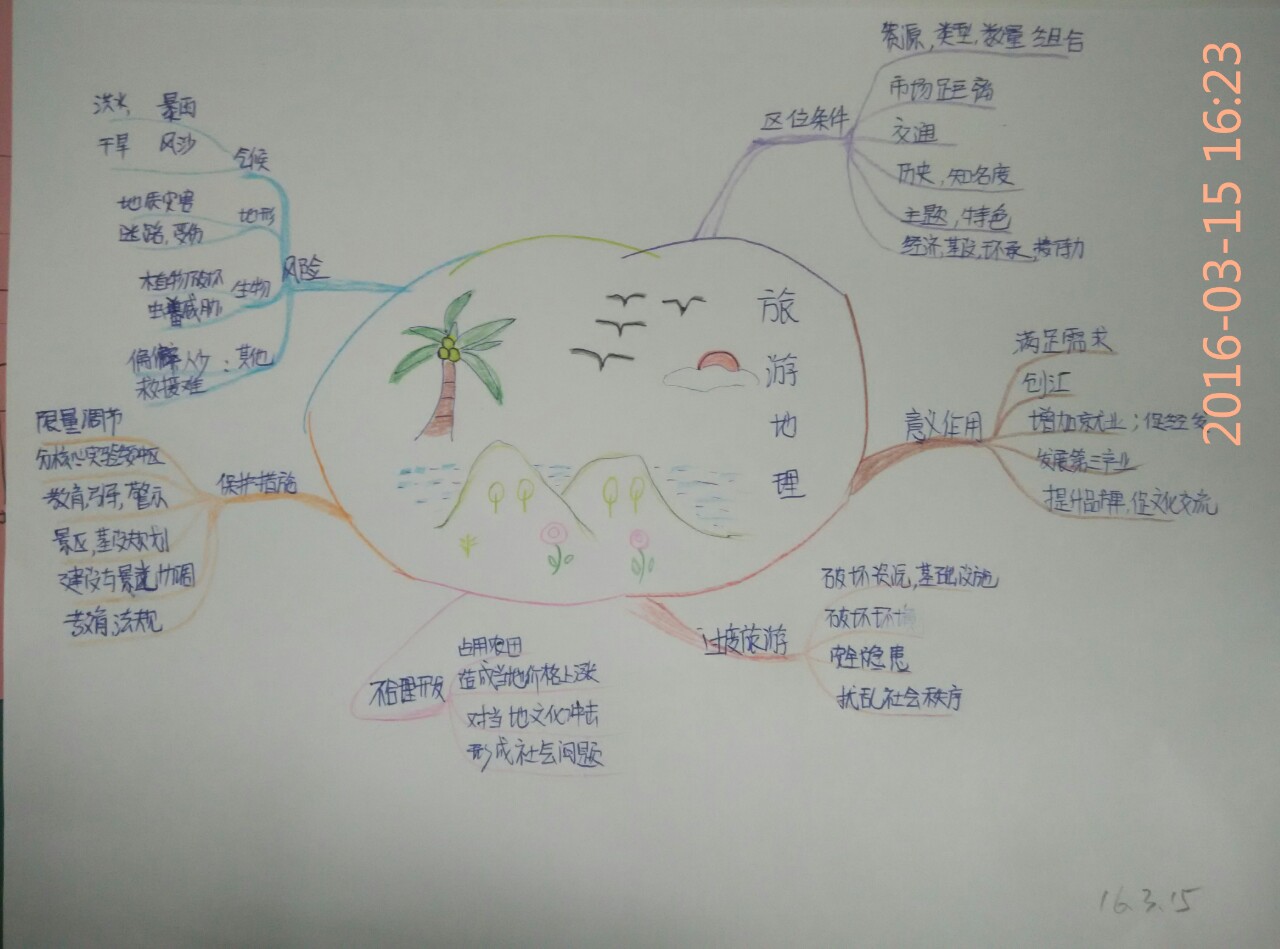 旅
游
地
理
区位条件
资源,类型,数量组合
市场距离
交通
历史,知名度
主题,特色
经济,基设,环承,接待力
意义作用
满足需求
创汇
增加就业;促经发
发展第三产业
提升品牌,促文化交流
过度旅游
破坏资源,基础设施
破坏环境
安全隐患
扰乱社会秩序
不合理开发
占用农田
造成当地价格上涨
对当地文化冲击
形成社会问题
保护措施
限量调节
分核心实验缓冲区
教育引导,警示
景区,基设规划
建设与景造协调
教育,法规
风险
气候
洪水 暴雨
干旱 风沙
地形
地质灾害
迷路,受伤
生物
植物破坏
虫兽威胁
:其他
偏僻人少
救援难
2016-03-15 16:23
16.3.15